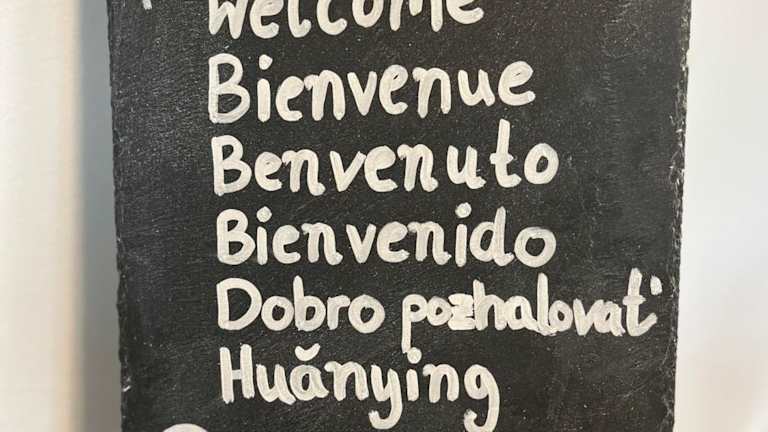 Welcome
Bienvenue
Benvenuto
Bienvenido
Dobro pozhalovat'
Huănying